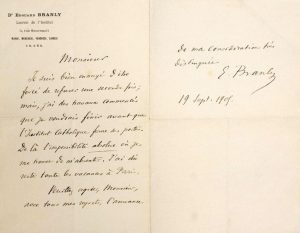 Dr Edouard BRANLY
Lauréat de l'Institut
MARDI, MERCREDI, VENDREDI, SAMEDI
Monsieur
Je suis bien ennuyé d'être
forcé de refuser une seconde fois,
mais, j'ai des travaux commencés
que je voudrais finir avant que
l'Institut Catholique ferme ses portes.
De là l'impossibilité absolue où je
me trouve de m'absenter. J'ai dû
rester toutes les vacances à Paris.
Veuillez agréer, Monsieur,
avec tous mes regrets, l'assurance
de ma considération très
distinguée
E. Branly
19 Sept. 1905